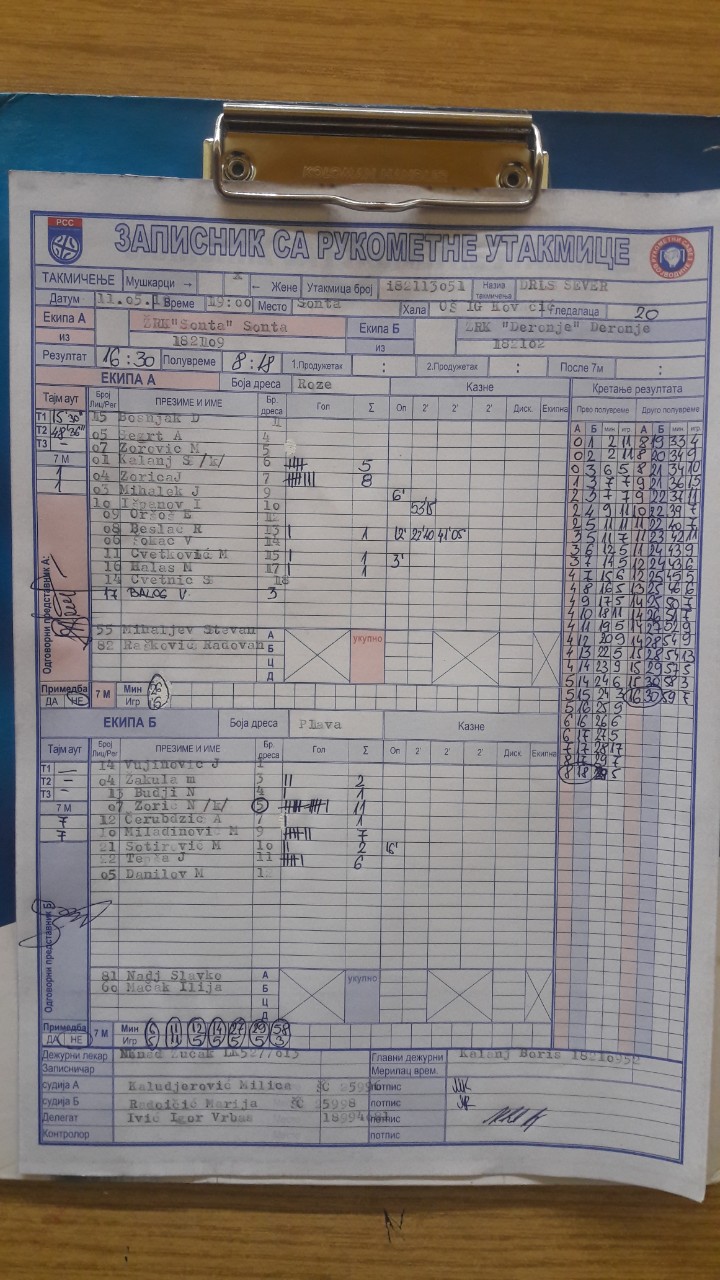 РСС
ЗАПИСНИК СА РУКОМЕТНЕ УТАКМИЦЕ
ТАКМИЧЕЊЕ Мушкарци → x ← Жене Утакмица број 182113051 Назив такмичења DRLS SEVER
Датум 11.05.18 Време 19:00 Место Sonta Хала OŠ IG Kov čić Гледалаца 20
Екипа А ŽRK"Sonta" Sonta Екипа Б ŽRK "Deronje" Deronje
из 182109 из 182102
Резултат 16:30 Полувреме 8:18 1.Продужетак : 2.Продужетак : После 7м :
ЕКИПА А Боја дреса Roze Казне Кретање резултата
Тајм аут Број Лиц/Рег ПРЕЗИМЕ И ИМЕ Бр. дреса Гол Σ Оп 2' 2' 2' Диск. Екипна Прво полувреме Друго полувреме
А Б мин игр А Б мин игр
Т1 15'30"
Т2 48'36"
Т3 –
7 М
1
1
15 Bošnjak D
05 Segrt A 4
07 Zorović N 5
01 Kalanj S /k/ 6 5
04 Zorica J 7 8
03 Mihalek J 9 6'
10 Išpanov I 10 53'15
09 Oršoš E
08 Beslać R 13 1 12' 22'10 41'05
06 Pokac V 14
11 Cvetković M 15 1 3'
16 Halas M 17 1
14 Cvetnić S 18
17 BALOG V. 3
Одговорни представник А:
55 Mihaljev Stevan А
82 Rašković Radovan Б
Ц
Д
укупно
Примедба ДА НЕ 7 М Мин 26
Игр 15
0 1 2 11 8 19 33 4
0 2 2 11 8 20 34 9
0 3 6 5 8 21 34 10
1 3 7 7 9 21 36 15
2 3 7 7 9 22 37 11
2 4 9 11 10 22 39 7
2 5 11 11 11 22 40 7
3 5 11 7 11 23 42 11
3 6 12 5 11 24 43 9
3 7 14 5 12 24 43 6
4 7 15 6 12 25 45 5
4 8 16 5 13 25 46 6
4 9 17 5
4 10 18 11
4 11 19 5
4 12 20 9 14 28 54 9
4 13 22 5 15 28 54 13
4 14 23 9 15 29 57 5
5 14 24 6 15 30 58 3
5 15 24 3 16 30 59 7
5 16 25 9
6 16 26 6
6 17 27 5
7 17 28 17
8 17 29 7
8 18 5
ЕКИПА Б Боја дреса Plava Казне
Тајм аут Број Лиц/Рег ПРЕЗИМЕ И ИМЕ Бр. дреса Гол Σ Оп 2' 2' 2' Диск. Екипна
Т1 —
Т2 –
Т3 –
7 М
7
7
14 Vujinović J 1
04 Žakula m 3 2
13 Budji N 4 1
07 Zorić N /k/ 5 11
12 Ćerubdžić A 7 1
10 Miladinović M 9 7
21 Sotirović M 10 2 16'
22 Tepša J 11 6
05 Danilov M
Одговорни представник Б:
81 Nadj Slavko А
60 Mačak Ilija Б
Ц
Д
укупно
Примедба ДА НЕ 7 М Мин 6 11 12 14 27 29 58
Игр 5 11 5 5 5 5 3
Дежурни лекар Главни дежурни Kalanj Boris 18210952
Записничар Мерилац врем.
судија А Kaludjerović Milica ŠC потпис
судија Б Radoičić Marija ŠC 25998 потпис
Делегат Ivić Igor Vrbas потпис
Контролор потпис